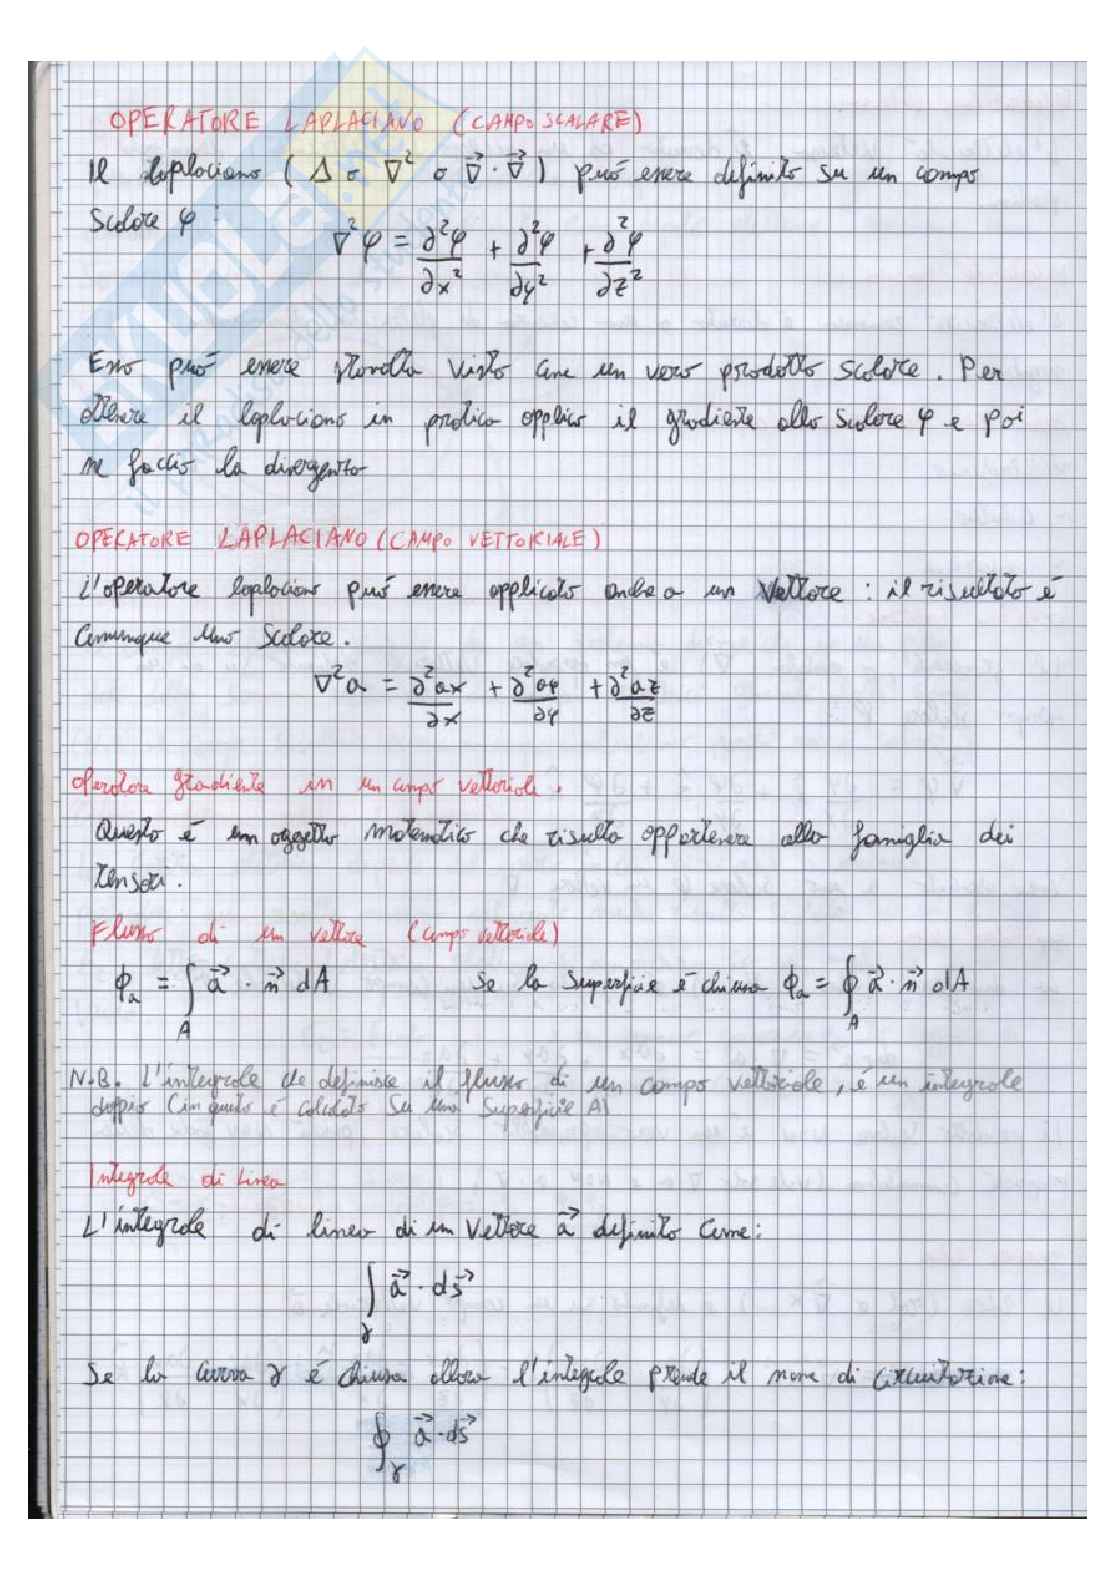 OPERATORE LAPLACIANO (CAMPO SCALARE)
Il laplaciano ( Δ o ∇² o ∇⃗ · ∇⃗ ) può essere definito su un campo
scalare φ :
∇²φ = ∂²φ/∂x² + ∂²φ/∂y² + ∂²φ/∂z²
Esso può essere stavolta visto come un vero prodotto scalare. Per
ottenere il laplaciano in pratica applico il gradiente allo scalare φ e poi
ne faccio la divergenza
OPERATORE LAPLACIANO (CAMPO VETTORIALE)
L'operatore laplaciano può essere applicato anche a un vettore : il risultato è
comunque uno scalare.
∇²a = ∂²ax/∂x + ∂²ay/∂y + ∂²az/∂z
Operatore gradiente in un campo vettoriale.
Questo è un oggetto matematico che risulta appartenere alla famiglia dei
tensori.
Flusso di un vettore (campo vettoriale)
ϕₐ = ∫_A a⃗ · n⃗ dA se la superficie è chiusa ϕₐ = ∮_A a⃗ · n⃗ dA
N.B. L'integrale che definisce il flusso di un campo vettoriale, è un integrale
doppio (in quanto è calcolato su una superficie A)
Integrale di linea
L'integrale di linea di un vettore a⃗ definito come:
∫_γ a⃗ · ds⃗
Se la curva γ è chiusa allora l'integrale prende il nome di circuitazione:
∮_γ a⃗ · ds⃗